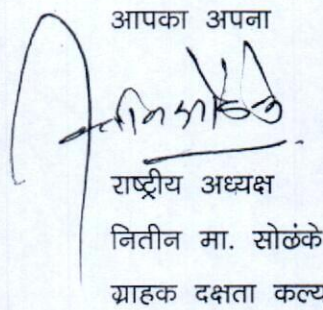 आपका अपना
राष्ट्रीय अध्यक्ष
नितीन मा. सोळंके
ग्राहक दक्षता कल्य